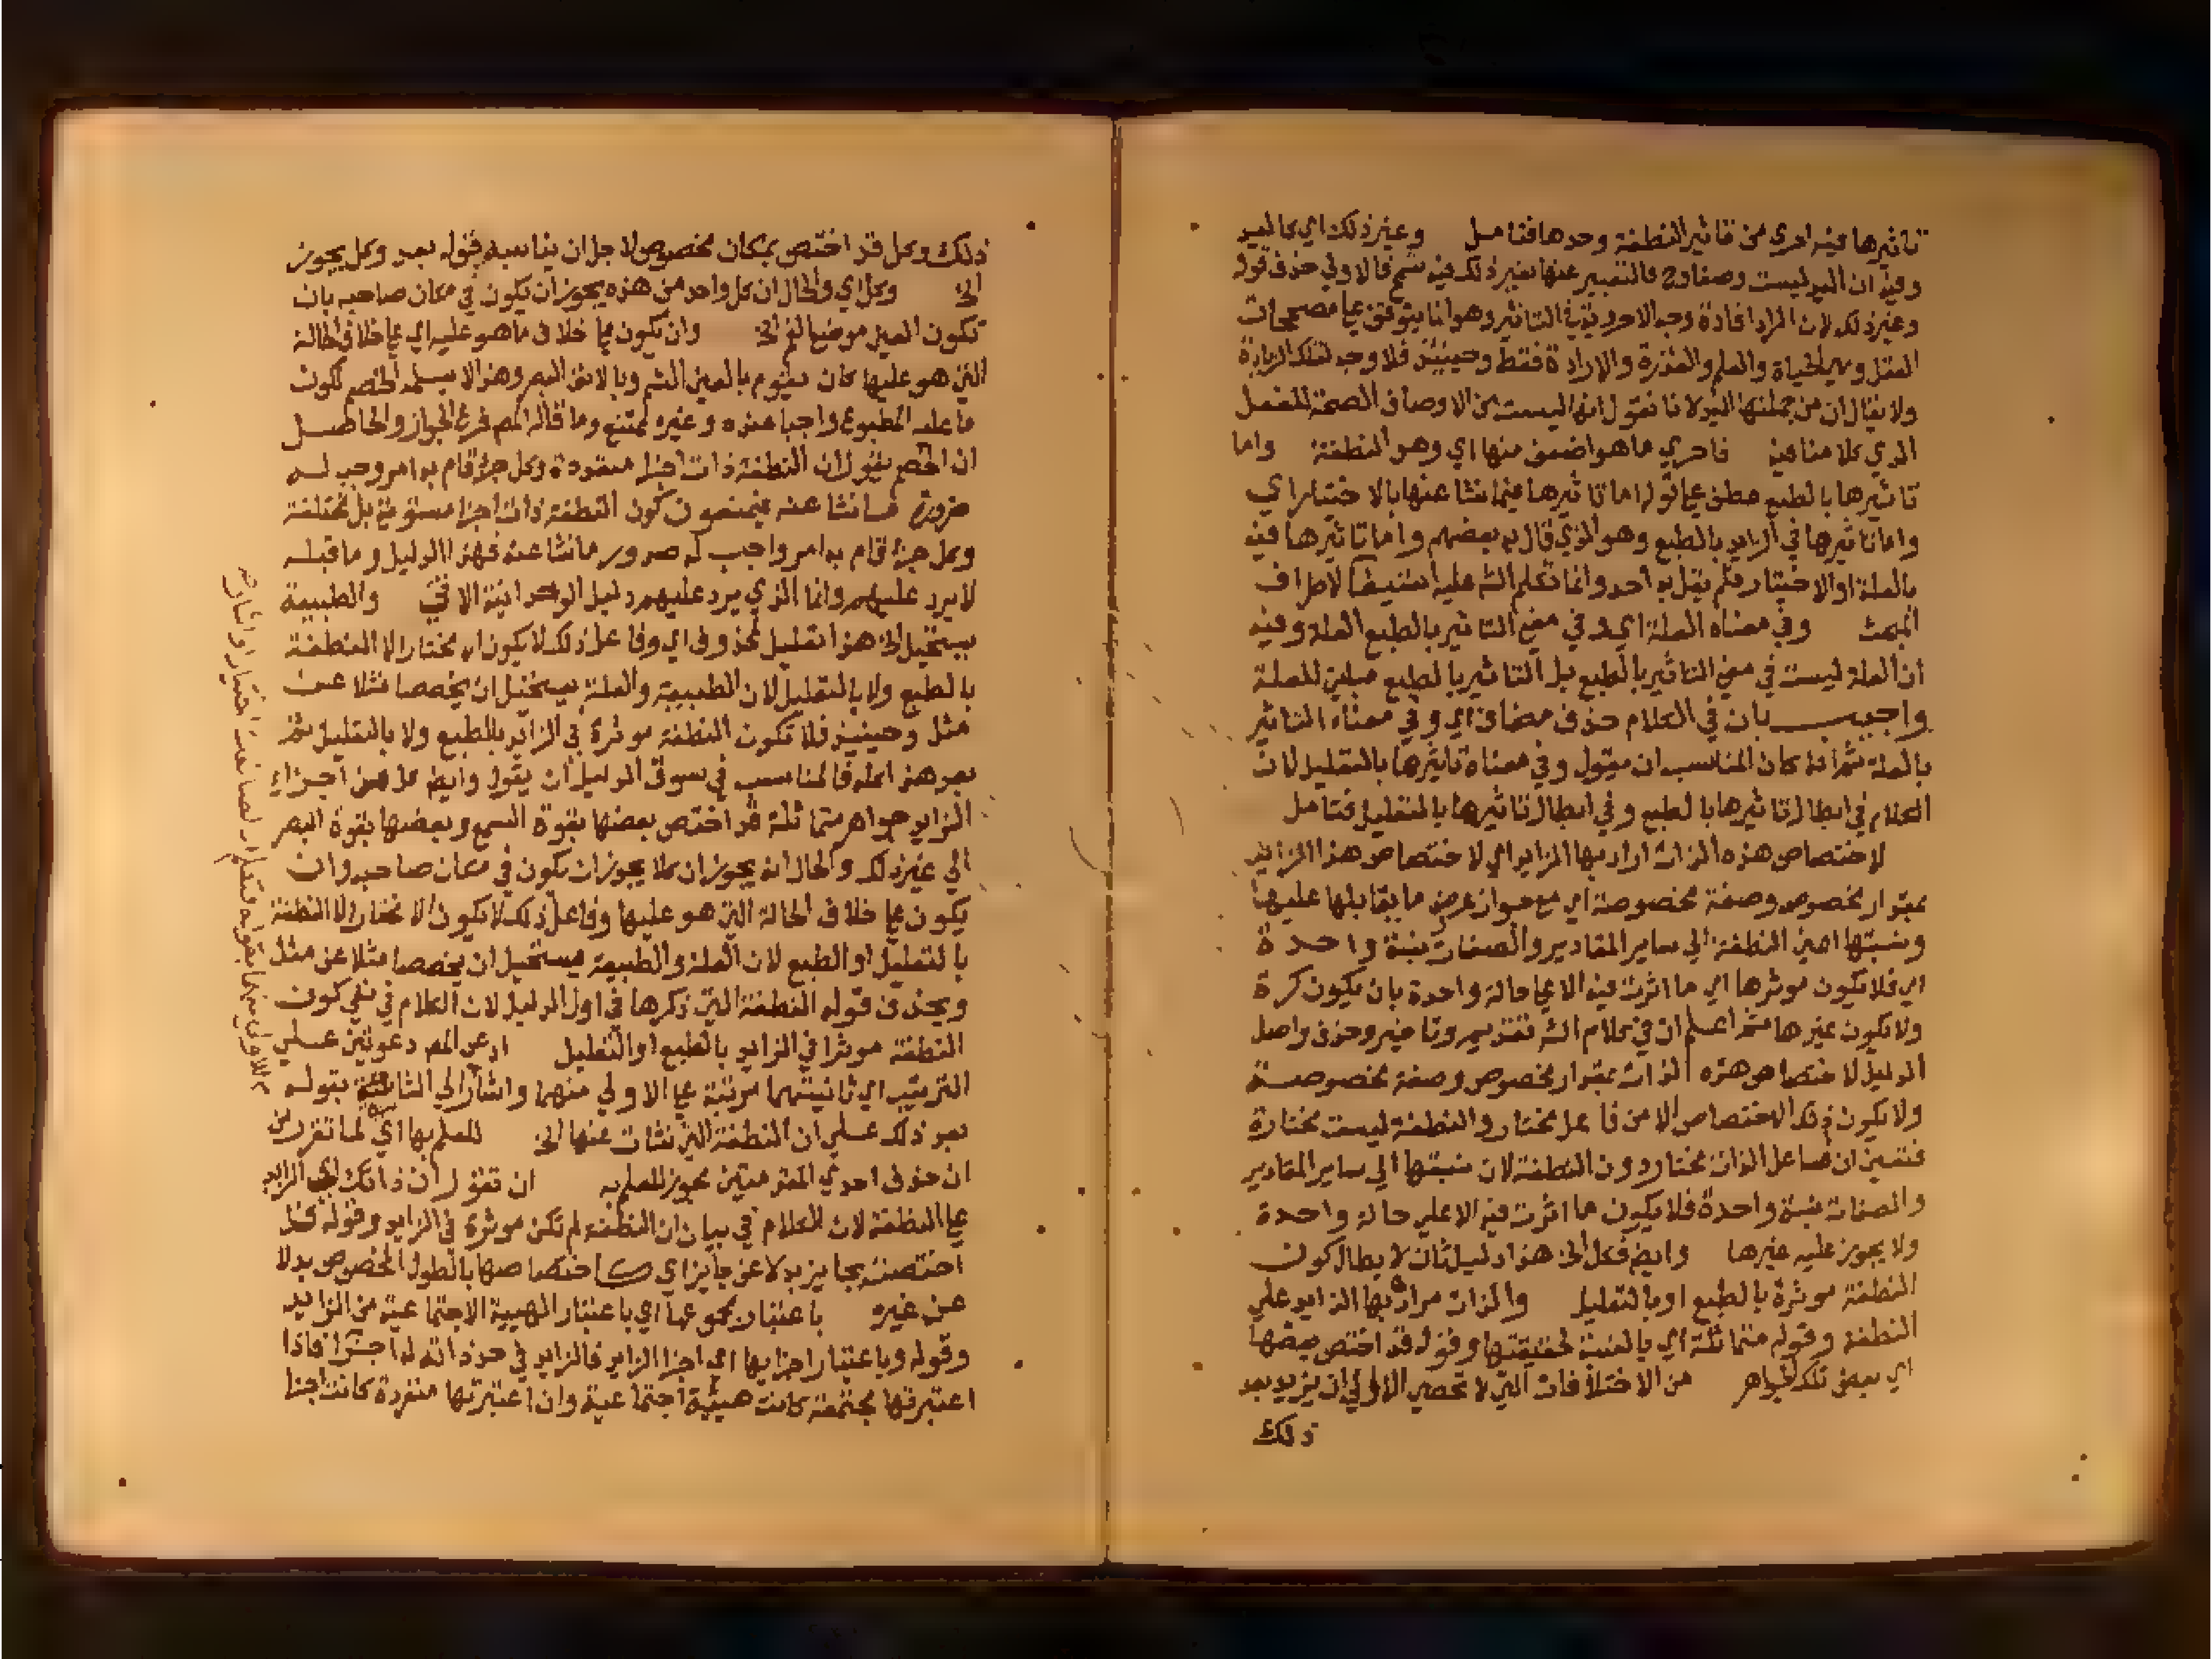 تاثيرها فيه احري من تاثير النطفة وحدها فتامل وغير ذلك اي كاليد
وفيه ان اليد ليست وصفا وح فالتعبير عنها بغير ذلك فيه شم فالاولي حذف قوله
وغير ذلك لان المراد افادة وجه الاحروية في التاثير وهو انما يتوقف علي مصححات
الفعل وهي الحياة والعلم والقدرة والارادة فقط وحينيذ فلا وجه لتلك الزيادة
ولا يقال ان من جملتها اليد لانا نقول انها ليست من الاوصاف المصححة للفعل
الذي كلامنا فيه فاحري ما هو اضعف منها اي وهو النطفة واما
تاثيرها بالطبع عطف علي قوله اما تاثيرها فيما نشا عنها بالاختيار اي
واما تاثيرها في الزايد بالطبع وهو الذي قال به بعضهم واما تاثيرها فيه
بالعلة او الاختيار فلم يقل به احد وانما تكلم الش عليه استيفا لاطراف
المبحث وفي معناه العلة اي وفي معني التاثير بالطبع العلة وفيه
ان العلة ليست في معني التاثير بالطبع بل التاثير بالطبع مباين للعلة
واجيب بان في الكلام حذف مضاف اي وفي معناه التاثير
بالعلة ثم انه كان المناسب ان يقول وفي معناه تاثيرها بالتعليل لان
الكلام في ابطال تاثيرها بالطبع وفي ابطال تاثيرها بالتعليل فتامل
لاختصاص هذه الذات اراد بها الزايد اي لاختصاص هذا الزايد
بمقدار مخصوص وصفة مخصوصة اي مع جواز عرض ما يقابلها عليها
ونسبتها اي النطفة الي ساير المقادير والصفات نسبة واحدة
اي فلا يكون موثرها اي ما اثرت فيه الا علي حالة واحدة بان يكون كرة
ولا يكون غيرها ثم اعلم ان في كلام الش تقديم وتاخير وحذف واصل
الدليل لاختصاص هذه الذات بمقدار مخصوص وصفة مخصوصة
ولا يكون ذلك الاختصاص الا من فاعل مختار والنطفة ليست مختارة
فتعين ان فاعل الذات مختار دون النطفة لان نسبتها الي ساير المقادير
والصفات نسبة واحدة فلا يكون ما اثرت فيه الا علي حالة واحدة
ولا يجوز عليه غيرها وايض فكل الخ هذا دليل ثان لابطال كون
النطفة موثرة بالطبع او بالتعليل والذات مراده بها الزايد علي
النطفة وقوله متماثلة اي بالنسبة لحقيقتها وقوله قد اختص بعضها
اي بعض تلك الجواهر من الاختلافات التي لا تحصي الاولي ان يزيد بعد
ذلك
ذلك وكل قد اختص بمكان مخصوص لاجل ان يناسبه قوله بعد وكل يجوز
الخ وكل اي والحال ان كل واحد من هذه يجوز ان يكون في مكان صاحبه بان
تكون العين موضع الفم الخ وان يكون علي خلاف ما هو عليه اي علي خلاف الحالة
التي هو عليها كان يقوم بالعين الشم وبالانف البصر وهذا لا يسلمه الخصم لكون
ما عليه المطبوع واجبا عنده وغيره ممتنع وما قاله المص فرع الجواز والحاصل
ان الخصم يقول ان النطفة ذات اجزا متعددة وكل جزء قام به امر وجب له
ضرورة ما نشا عنه فيمنعون كون النطفة ذات اجزا مستوية بل مختلفة
وكل جزء قام به امر واجب له صدور ما نشا عنه فهذا الدليل وما قبله
لا يرد عليهم وانما الذي يرد عليهم دليل الوحدانية الاتي والطبيعة
يستحيل الخ هذا تعليل لمحذوف اي وفاعل ذلك لا يكون الا مختارا لا النطفة
بالطبع ولا بالتعليل لان الطبيعة والعلة يستحيل ان يخصصا مثلا عن
مثل وحينيذ فلا تكون النطفة موثرة في الزايد بالطبع ولا بالتعليل ثم
بعد هذا كله فالمناسب في سوق الدليل ان يقول وايض كل من اجزاء
الزايد جواهر متماثلة قد اختص بعضها بقوة السمع وبعضها بقوة البصر
الي غير ذلك والحال انه يجوز ان كلا يجوز ان يكون في مكان صاحبه وان
يكون علي خلاف الحالة التي هو عليها وفاعل ذلك لا يكون الا مختارا لا النطفة
بالتعليل او الطبع لان العلة والطبيعة يستحيل ان يخصصا مثلا عن مثل
ويحذف قوله النطفة التي ذكرها في اول الدليل لان الكلام في نفي كون
النطفة موثرا في الزايد بالطبع او التعليل ادعي المص دعوتين علي
الترتيب اي ثانيتهما مرتبة علي الاولي منهما واشار الي الثانية بقوله
بعد ذلك علي ان النطفة التي نشات عنها الخ للعلم بها اي لما تقرر من
ان حذف احدي المقدمتين يجوز للعلم به ان تقول ان ذاتك اي الزايد
علي النطفة لان الكلام في بيان ان النطفة لم تكن موثرة في الزايد وقوله قد
اختصت بجايز بدلا عن جايز اي اختصاصها بالطول المخصوص بدلا
عن غيره باعتبار مجموعها اي باعتبار الهيية الاجتماعية من الزايد
وقوله وباعتبار اجزايها اي اجزا الزايد فالزايد في حد ذاته له اجزا فاذا
اعتبرتها مجتمعة كانت هيئة اجتماعية وان اعتبرتها منفردة كانت اجزا